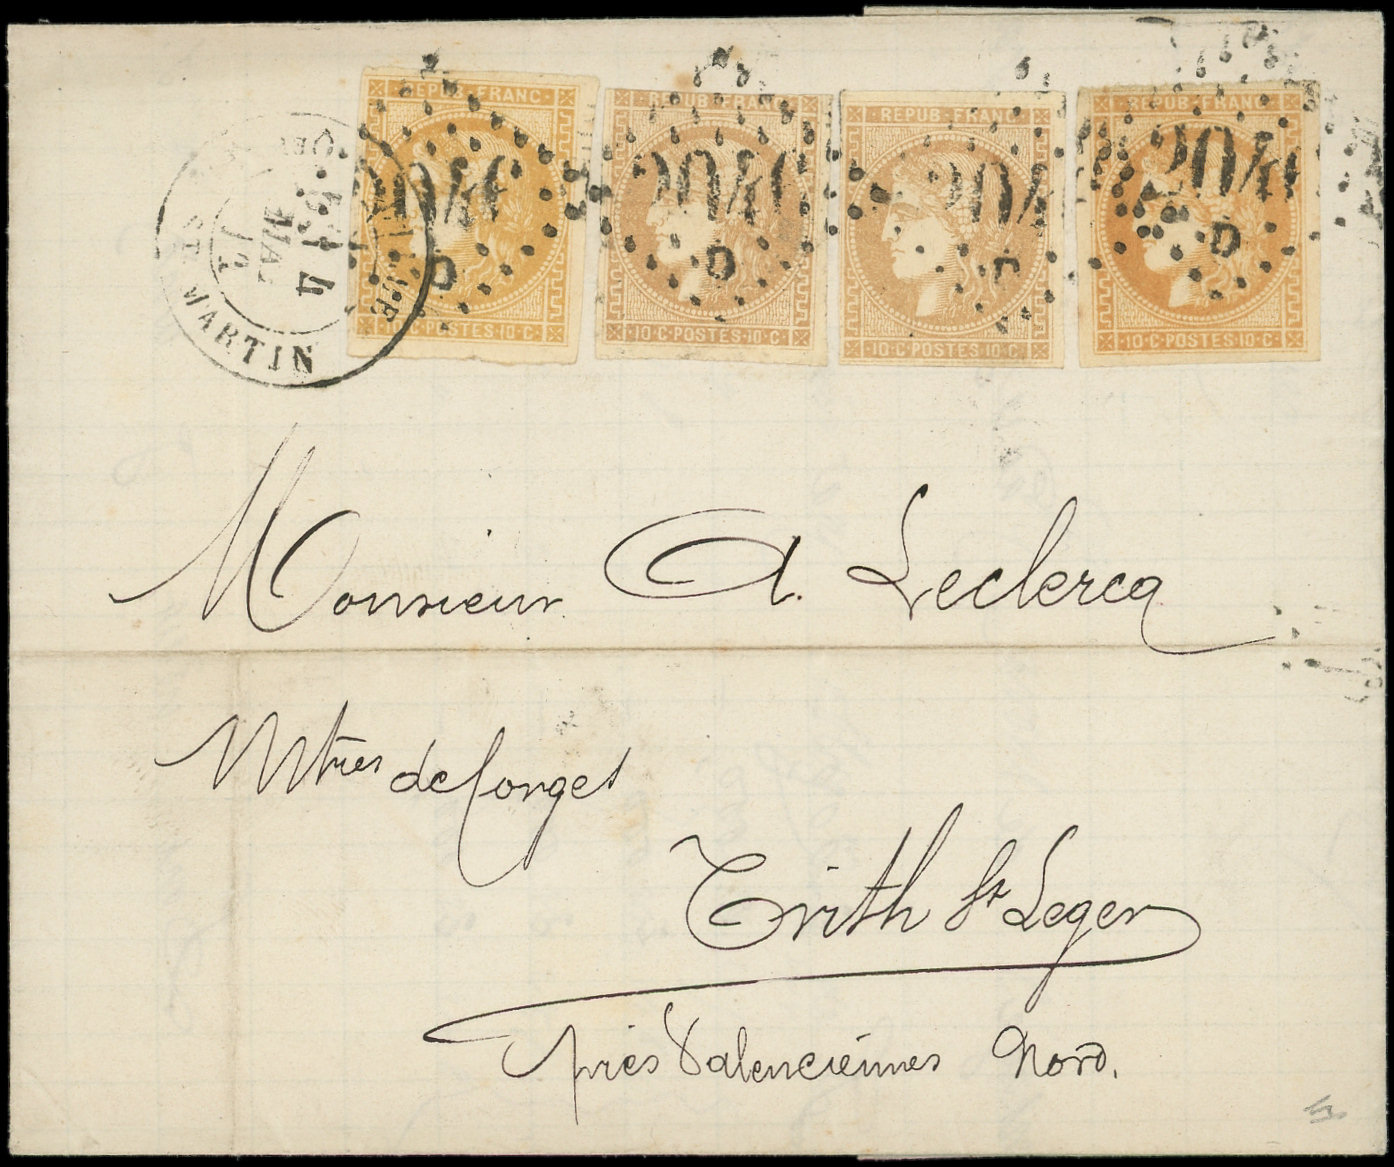 REPUB·FRANC·
REPUB·FRANC·
REPUB·FRANC·
REPUB·FRANC·
2046
2046
204
2046
D
D
D
10·C·POSTES·10·C·
10·C·POSTES·10·C·
10·C·POSTES·10·C·
10·C·POSTES·10·C·
4
MAI
72
ST. MARTIN
Monsieur A. Leclercq
Mtres de forges
Trith St Leger
près Valenciennes Nord.